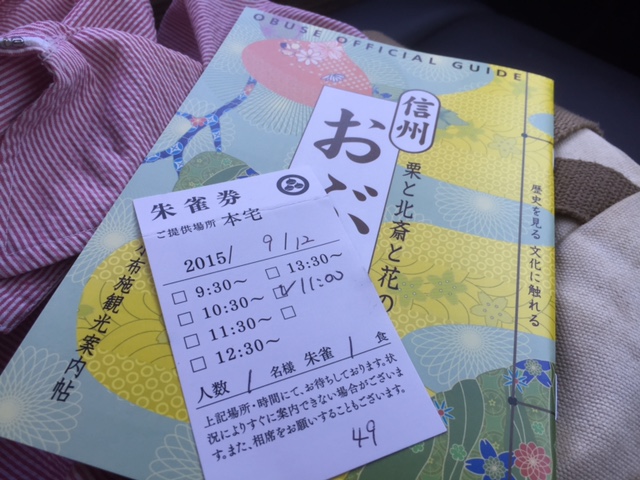 OBUSE OFFICIAL GUIDE
信州
おぶ
栗と北斎と花の
歴史を見る 文化に触れる
布施観光案内帖
朱雀券
ご提供場所 本宅
2015/ 9/12
□ 9:30~ □ 13:30~
□ 10:30~ ☑ 11:00
□ 11:30~ □
□ 12:30~
人数 1 名様 朱雀 1 食
上記場所・時間にて、お待ちしております。状
況によりすぐに案内できない場合がございま
す。また、相席をお願いすることもございます。
49